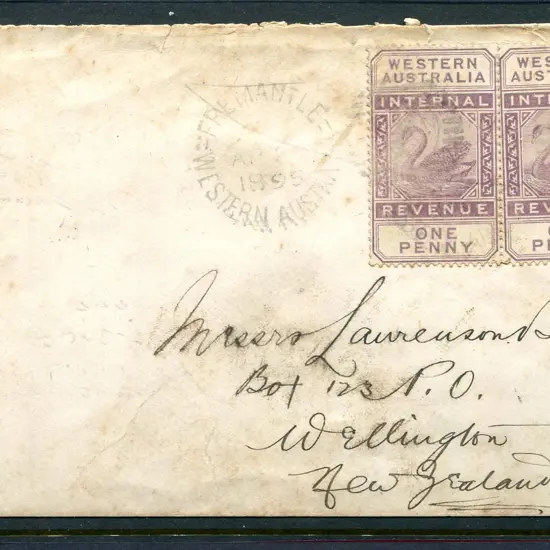 =FREMANTLE=
1895
WESTERN AUSTRA
WESTERN
AUSTRALIA
INTERNAL
REVENUE
ONE
PENNY
WES
AUST
INT
REV
O
PE
Messrs Laurenson
Box 123 P.O.
Wellington
New Zealand